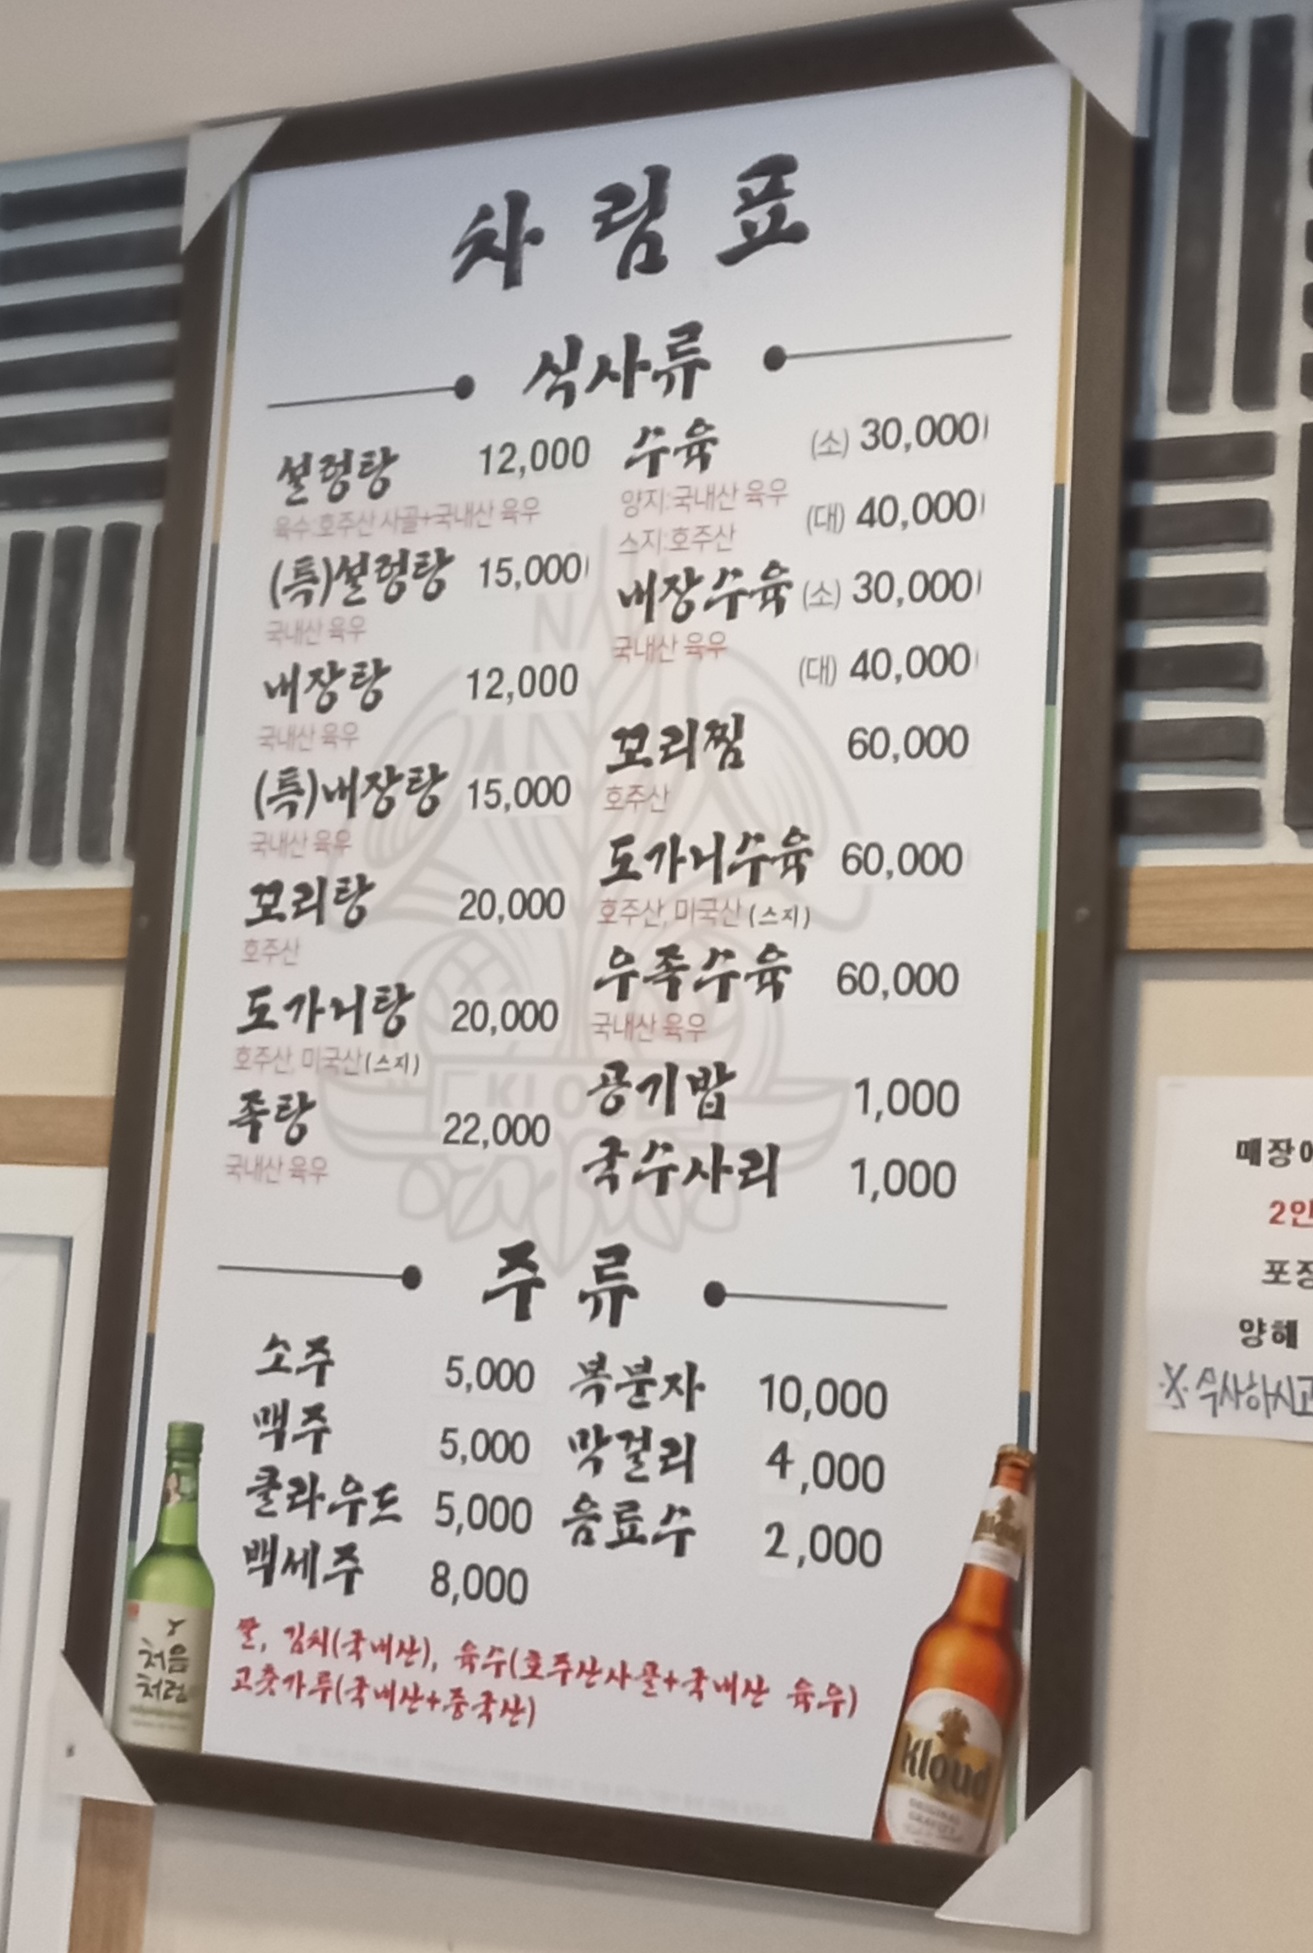 차림표
식사류
설렁탕 12,000
육수:호주산 사골+국내산 육우
(특)설렁탕 15,000
국내산 육우
내장탕 12,000
국내산 육우
(특)내장탕 15,000
국내산 육우
꼬리탕 20,000
호주산
도가니탕 20,000
호주산, 미국산(스지)
족탕 22,000
국내산 육우
수육 (소) 30,000
양지:국내산 육우
(대) 40,000
스지:호주산
내장수육 (소) 30,000
국내산 육우
(대) 40,000
꼬리찜 60,000
호주산
도가니수육 60,000
호주산, 미국산(스지)
우족수육 60,000
국내산 육우
공기밥 1,000
국수사리 1,000
주류
소주 5,000
맥주 5,000
클라우드 5,000
백세주 8,000
복분자 10,000
막걸리 4,000
음료수 2,000
쌀, 김치(국내산), 육수(호주산사골+국내산 육우)
고춧가루(국내산+중국산)
처음
처럼
Kloud
ORIGINAL
GRAVITY
매장에
2인
포장
양해
※수사하시고